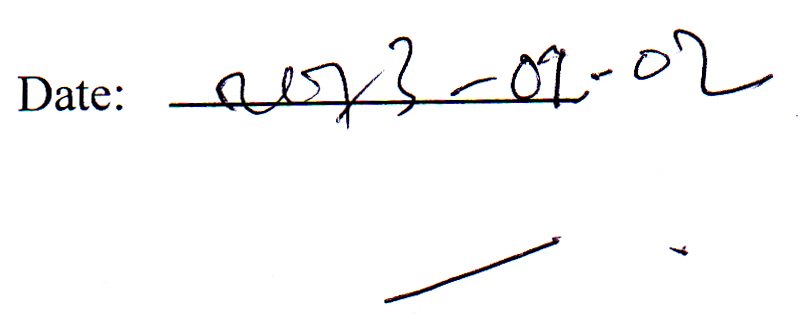 Date: 2013-09-02